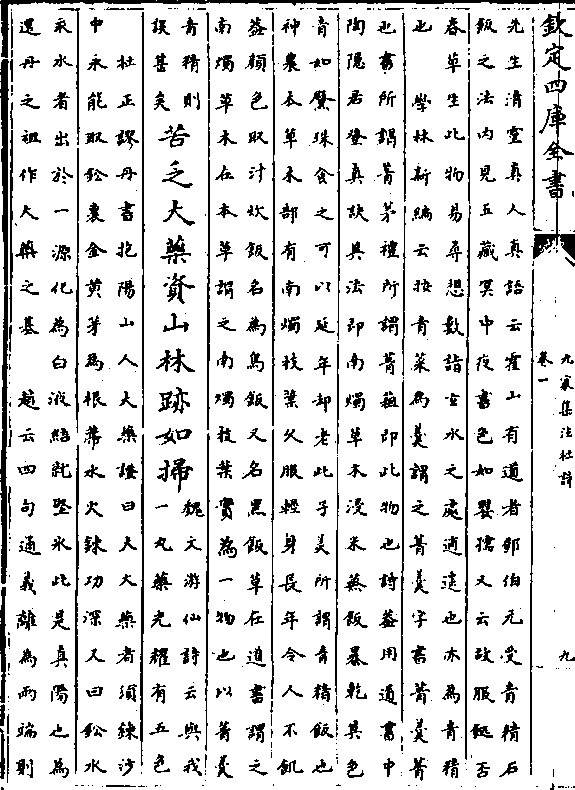 欽定四庫全書
九家集注杜詩
卷一
九
先生清靈真人真誥云霍山有道者鄧伯元受青精石
飯之法內見五藏冥中夜書色如嬰孺又云故服䭀否
春草生此物易尋想數詣玄水之處逍遙也亦為青精
也　學林新編云按青菜為羹謂之菁羹字書菁羹菁
也書所謂菁茅禮所謂菁菹即此物也詩蓋用道書中
陶隱居登真訣具法即南燭草木浸米蒸飯暴乾其色
青如瑿珠食之可以延年却老此子美所謂青精飯也
神農本草木部有南燭枝葉久服輕身長年令人不飢
益顏色取汁炊飯名為烏飯又名黑飯草在道書謂之
南燭草木在本草謂之南燭枝葉實為一物也以菁羹
青精則
誤甚矣
苦乏大藥資山林跡如掃
魏文游仙詩云與我
一丸藥光耀有五色
杜正謬丹書抱陽山人大藥證曰夫大藥者須鍊沙
中汞能取鉛裏金黄芽為根蔕水火鍊功深又曰鉛水
汞水者出於一源化為白液結就堅氷此是真陽也為
還丹之祖作大藥之基　趙云四句通義離為兩端則